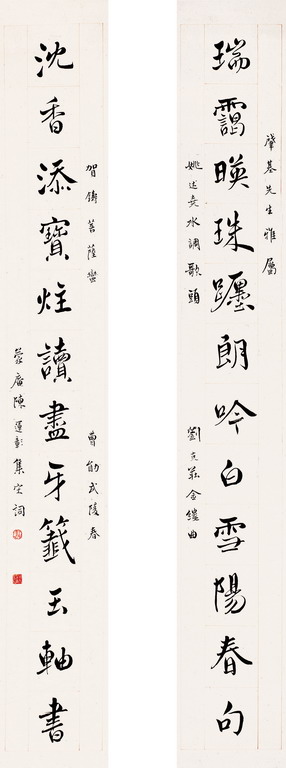 肇基先生雅屬
瑞靄暎珠躔朗吟白雪陽春句
姚述堯水調歌頭
劉克莊金縷曲
沈香添寶炷讀盡牙籤玉軸書
賀鑄菩薩蠻
曹勛武陵春
蒙庵陳運彰集宋詞